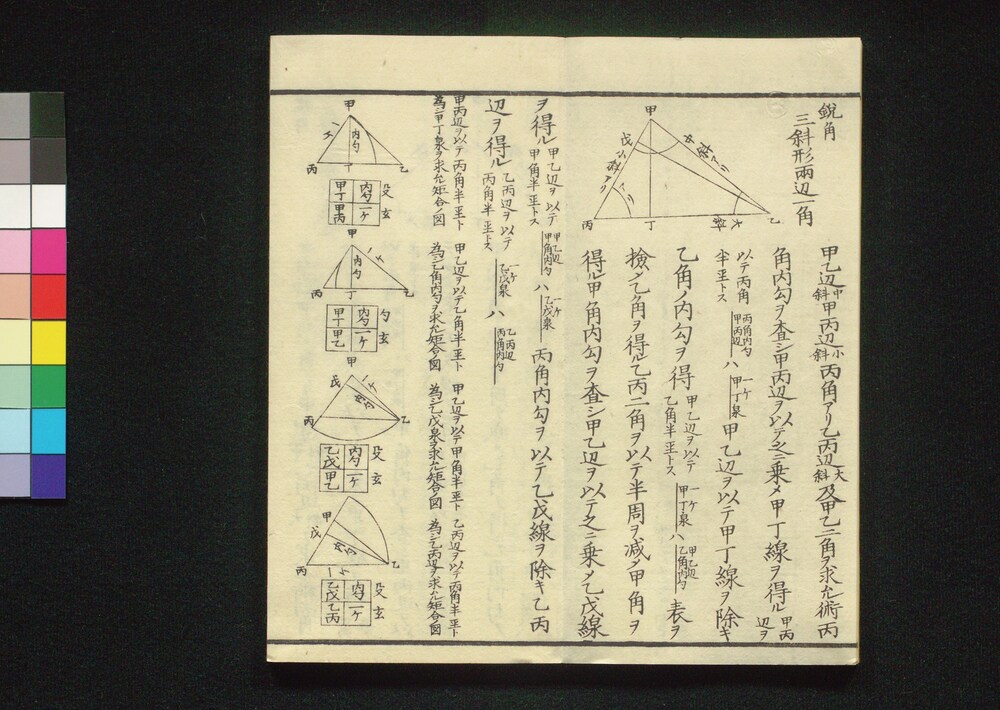 鋭角
三斜形兩辺一角
甲
中斜アリ
戊
小斜アリ
アリ
丙
丁
大斜
乙
甲乙辺中斜甲丙辺小斜丙角アリ乙丙辺大斜及甲乙二角ヲ求ル術丙
角内勾ヲ査シ甲丙辺ヲ以テ之ニ乗メ甲丁線ヲ得ル甲丙辺ヲ
以テ丙角半至トス
丙角内勾
甲丙辺
ハ
一ケ
甲丁泉
甲乙辺ヲ以テ甲丁線ヲ除キ
乙角ノ内勾ヲ得甲乙辺ヲ以テ乙角半至トス
一ケ
甲丁泉
ハ
甲乙辺
乙角内勾
表ヲ
撿メ乙角ヲ得ル乙丙二角ヲ以テ半周ヲ减メ甲角ヲ
得ル甲角内勾ヲ査シ甲乙辺ヲ以テ之ニ乗メ乙戊線
ヲ得ル甲乙辺ヲ以テ甲角半至トス
甲乙辺
甲角内勾
ハ
一ケ
乙戊泉
丙角内勾ヲ以テ乙戊線ヲ除キ乙丙
辺ヲ得ル乙丙辺ヲ以テ丙角半至トス
一ケ
乙戊泉
ハ
乙丙辺
丙角内勾
甲丙辺ヲ以テ丙角半至ト
為シ甲丁泉ヲ求ル矩合ノ図
甲
一ケ
内勾
丙
丁
乙
内勾
一ケ
甲丁
甲丙
殳
玄
甲乙辺ヲ以テ乙角半至ト
為シ乙角内勾ヲ求ル矩合図
甲
一ケ
内勾
丙
丁
乙
内勾
一ケ
甲丁
甲乙
勾
玄
甲乙辺ヲ以テ甲角半至ト
為シ乙戊泉ヲ求ル矩合ノ図
甲
戊
一ケ
内勾
丙
乙
内勾
一ケ
乙戊
甲乙
殳
玄
乙丙辺ヲ以テ丙角半至ト
為シ乙丙辺ヲ求ル矩合図
甲
戊
内勾
丙
一ケ
乙
内勾
一ケ
乙戊
乙丙
殳
玄